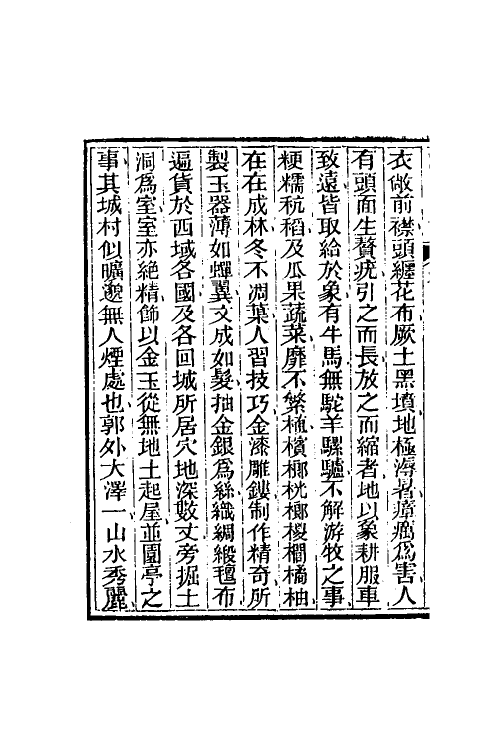 衣敞前襟頭纏花布厥土黑墳地極溽暑瘴癘為害人
有頭面生贅疣引之而長放之而縮者地以象耕服車
致遠皆取給於象有牛馬無駝羊騾驢不解游牧之事
粳糯秔稻及瓜果蔬菜靡不繁植檳榔桄榔椶櫚橘柚
在在成林冬不凋葉人習技巧金漆雕鏤制作精奇所
製玉器薄如蟬翼文成如髮抽金銀為絲織綢緞氊布
遍貨於西域各國及各回城所居穴地深數丈旁掘土
洞為室室亦絶精飾以金玉從無地土起屋並園亭之
事其城村似曠邈無人煙處也郭外大澤一山水秀麗